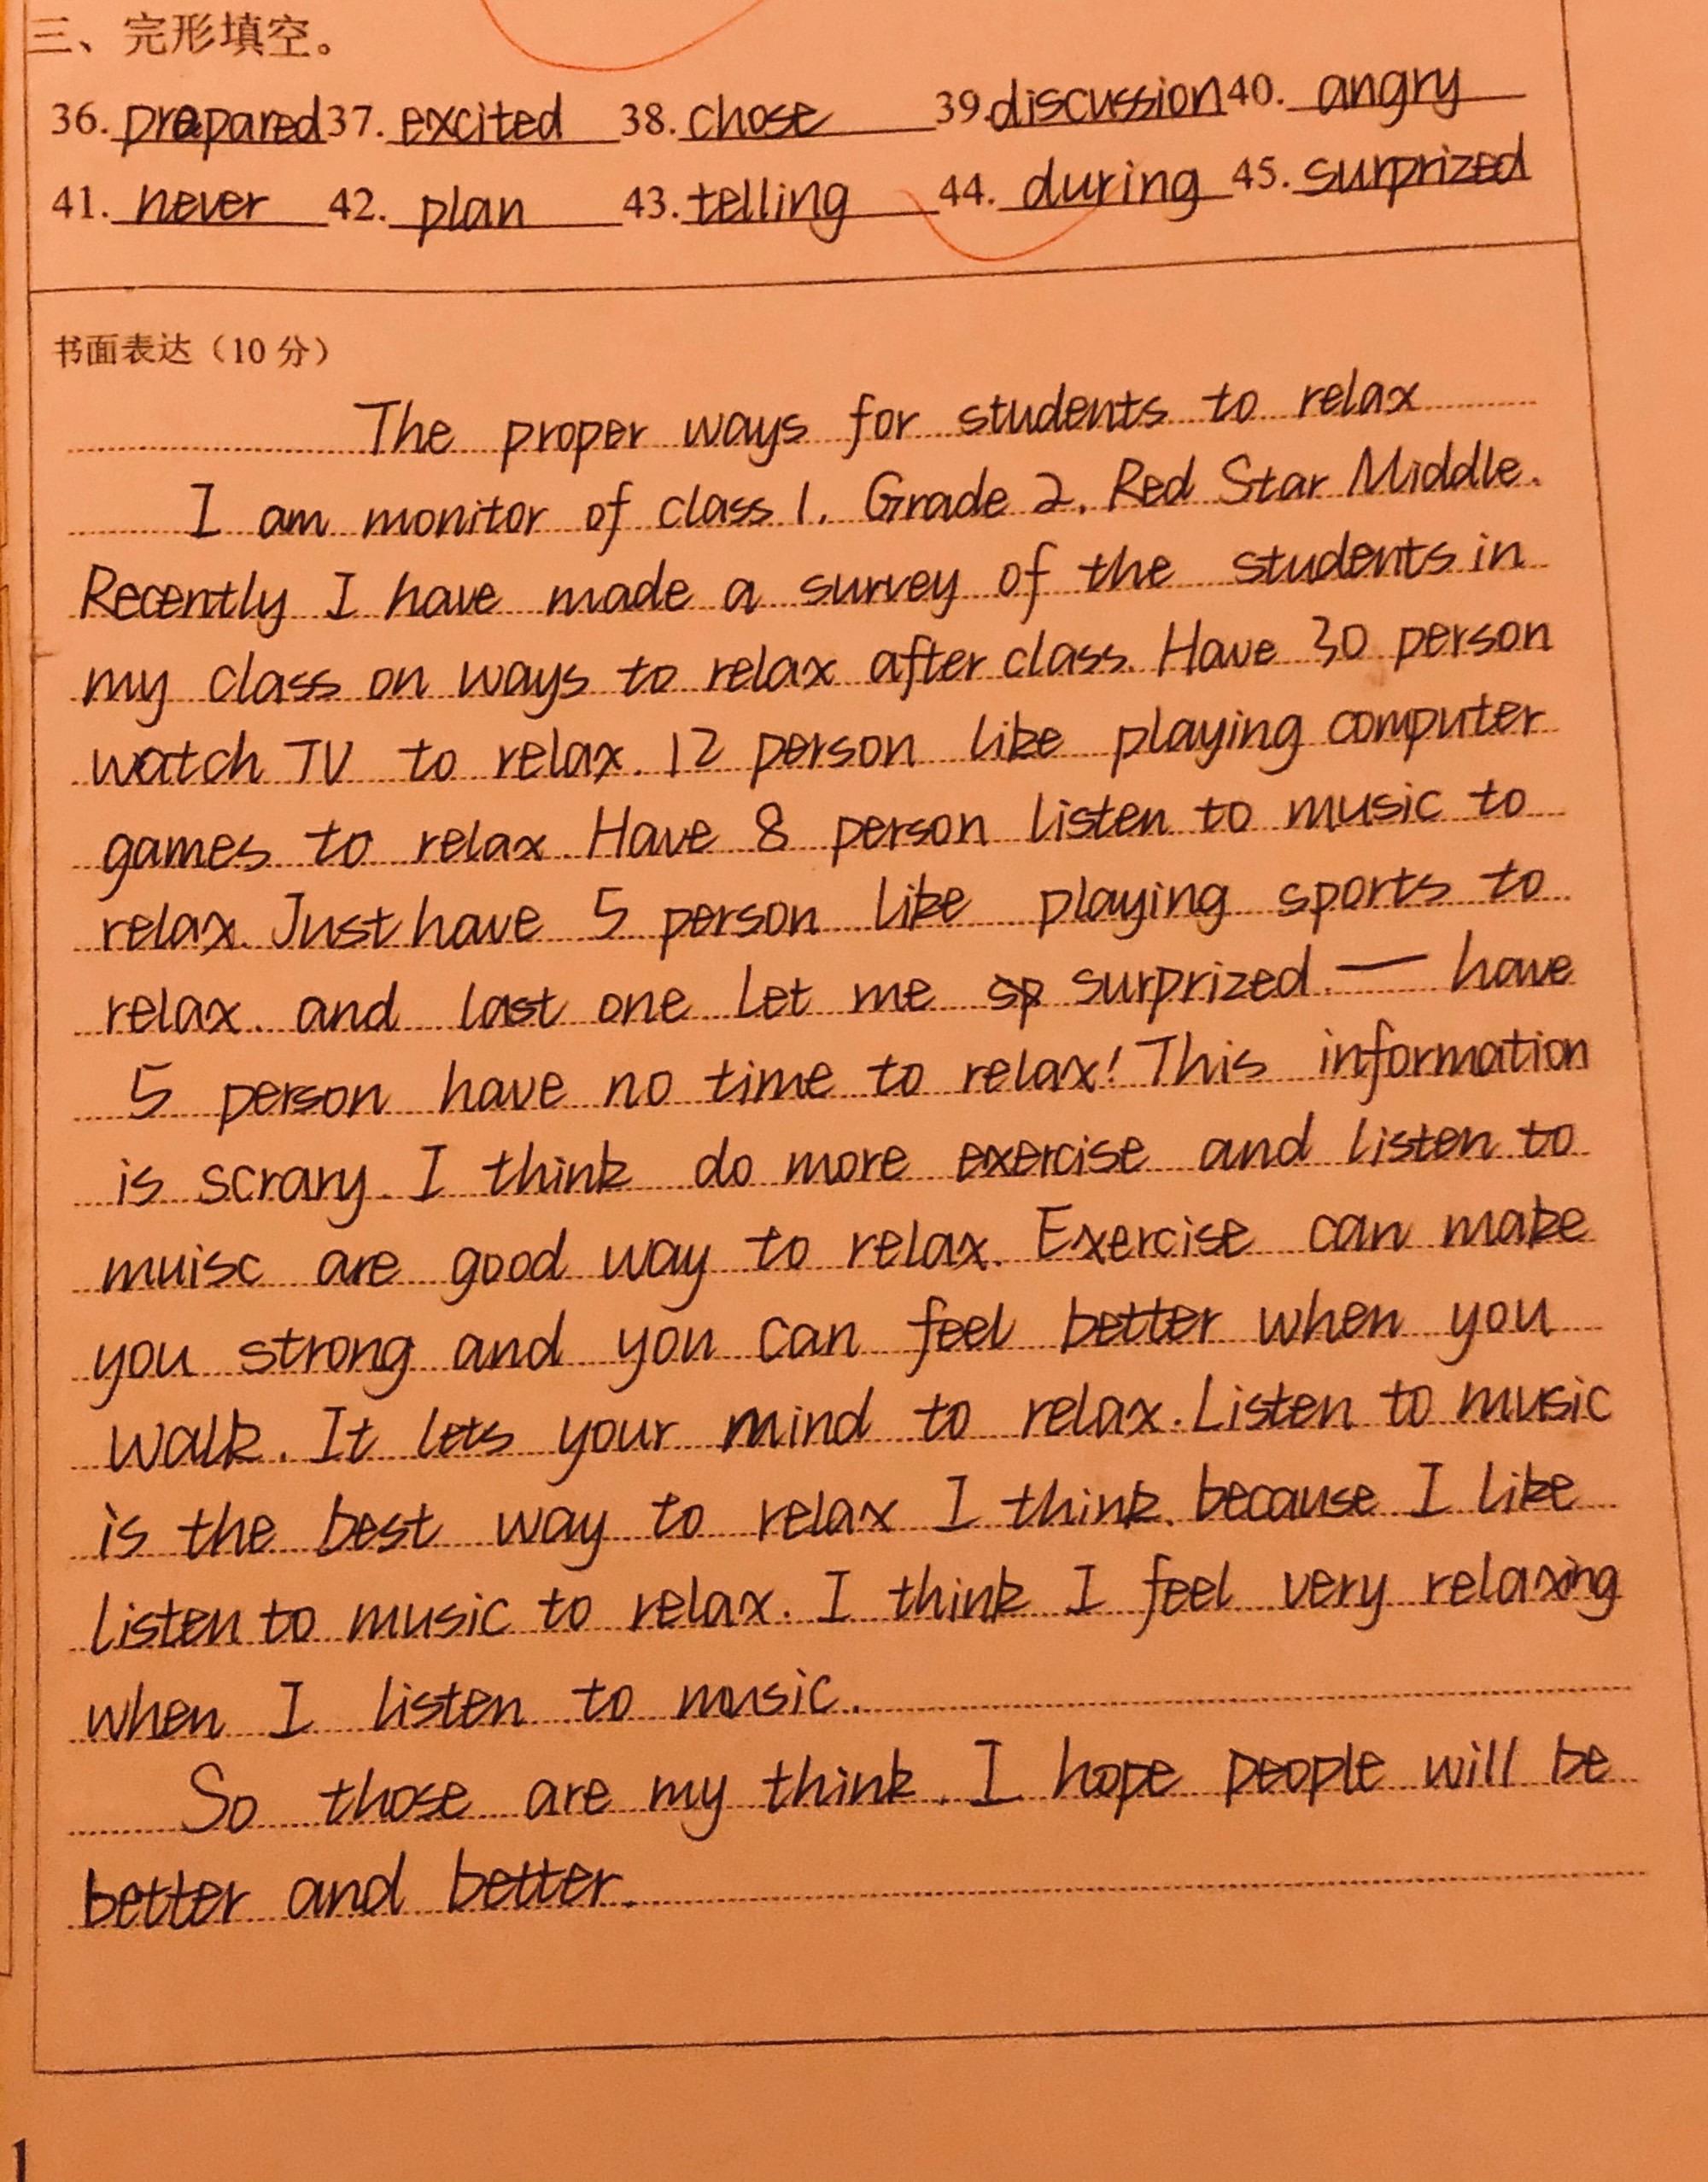 三、完形填空。
36. prepared 37. excited 38. chose 39. discussion 40. angry
41. never 42. plan 43. telling 44. during 45. surprized
书面表达（10 分）
The proper ways for students to relax
I am monitor of class 1. Grade 2. Red Star Middle.
Recently I have made a survey of the students in
my class on ways to relax after class. Have 30 person
watch TV to relax. 12 person like playing computer
games to relax. Have 8 person listen to music to
relax. Just have 5 person like playing sports to
relax. and last one let me surprized. — have
5 person have no time to relax! This information
is scrary. I think do more exercise and listen to
muisc are good way to relax. Exercise can make
you strong and you can feel better when you
walk. It lets your mind to relax. Listen to music
is the best way to relax I think. because I like
listen to music to relax. I think I feel very relaxing
when I listen to music.
So those are my think. I hope people will be
better and better.
1